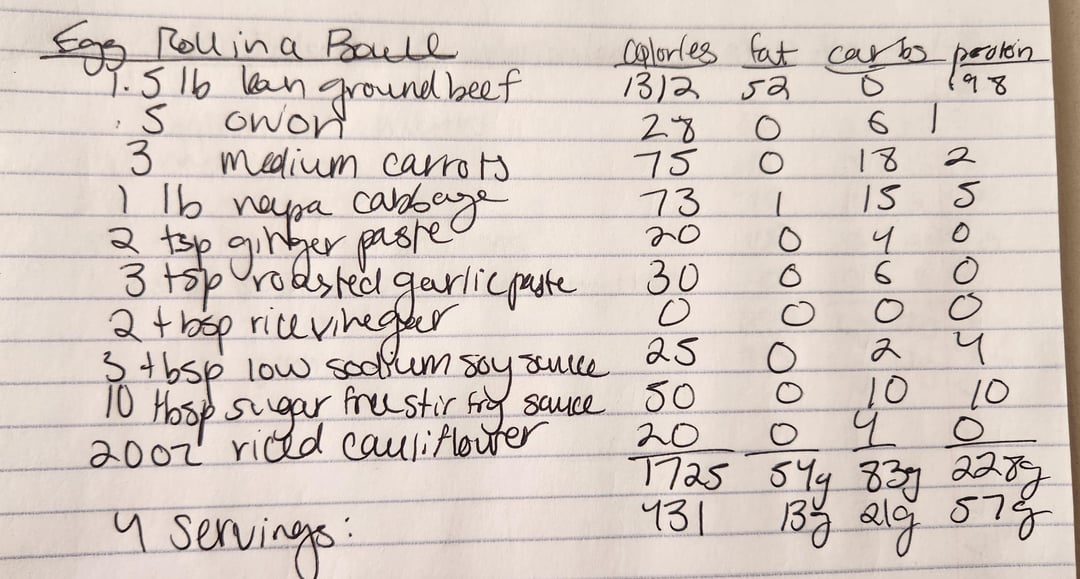 Egg Roll in a Bowl calories fat carbs protein
1.5 lb lean ground beef 1312 52 0 198
.5 onion 28 0 6 1
3 medium carrots 75 0 18 2
1 lb napa cabbage 73 1 15 5
2 tsp ginger paste 20 0 4 0
3 tsp roasted garlic paste 30 0 6 0
2 tbsp rice vinegar 0 0 0 0
3 tbsp low sodium soy sauce 25 0 2 4
10 tbsp sugar free stir fry sauce 50 0 10 10
20oz riced cauliflower 20 0 4 0
1725 54g 83g 228g
4 servings: 431 13g 21g 57g